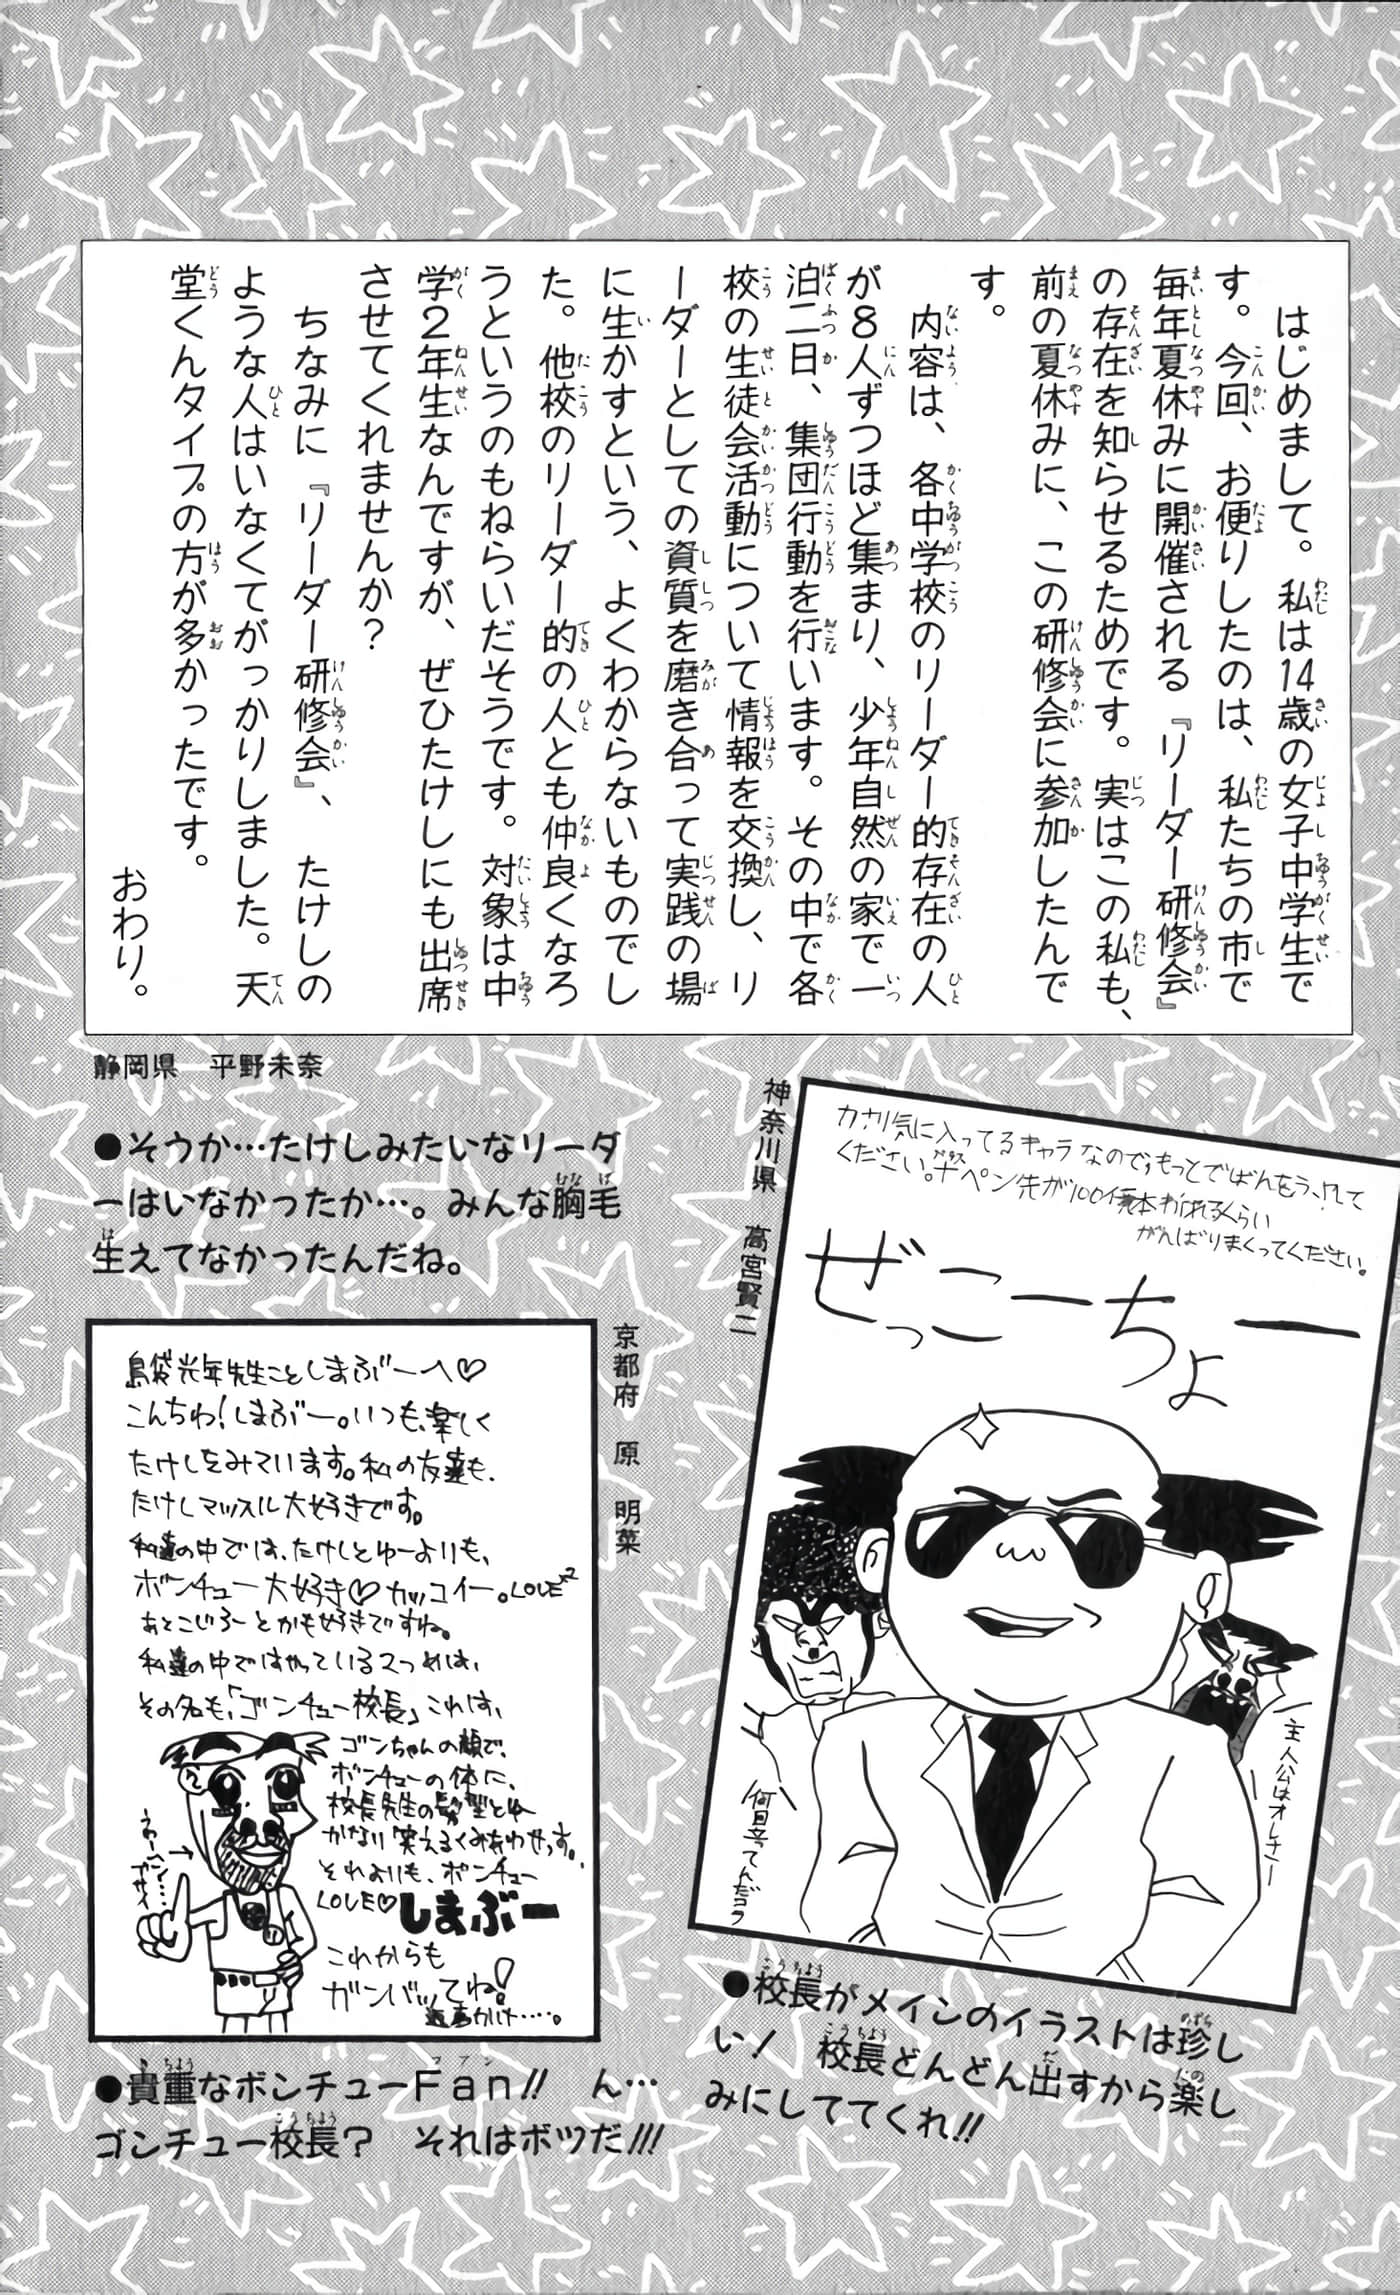 はじめまして。私は14歳の女子中学生で
す。今回、お便りしたのは、私たちの市で
毎年夏休みに開催される『リーダー研修会』
の存在を知らせるためです。実はこの私も、
前の夏休みに、この研修会に参加したんで
す。
内容は、各中学校のリーダー的存在の人
が8人ずつほど集まり、少年自然の家で一
泊二日、集団行動を行います。その中で各
校の生徒会活動について情報を交換し、リ
ーダーとしての資質を磨き合って実践の場
に生かすという、よくわからないものでし
た。他校のリーダー的の人とも仲良くなろ
うというのもねらいだそうです。対象は中
学2年生なんですが、ぜひたけしにも出席
させてくれませんか?
ちなみに『リーダー研修会』、たけしの
ような人はいなくてがっかりしました。天
堂くんタイプの方が多かったです。
おわり。
静岡県 平野未奈
●そうか…たけしみたいなリーダ
ーはいなかったか…。みんな胸毛
生えてなかったんだね。
神奈川県 高宮賢二
カナリ気に入ってるキャラなので、もっとでばんを
ください。ペン先が100億本がれるくらい
がんばりまくってください。
ぜっこーちょー
主人公はオレさー
何目立ってんだコラ
●校長がメインのイラストは珍し
い! 校長どんどん出すから楽し
みにしててくれ!!
京都府 原 明菜
島袋光年先生ことしまぶーへ♡
こんちわ!しまぶー。いつも、楽しく
たけしをみています。私の友達も、
たけしマッスル大好きです。
私達の中では、たけしとゆーよりも、
ボンチュー大好き♡カッコイー。LOVE×2
あとこじろーとかも好きですね。
私達の中ではやっている2つめは、
その名も、「ゴンチュー校長」これは、
ゴンちゃんの顔で、
ボンチューの体に、
校長先生の髪型とゆー
かなり笑えるくみあわせっす。
それよりも、ボンチュー
LOVE♡
しまぶー
これからも
ガンバッてね!
●貴重なボンチューFan!! ん…
ゴンチュー校長? それはボツだ!!!